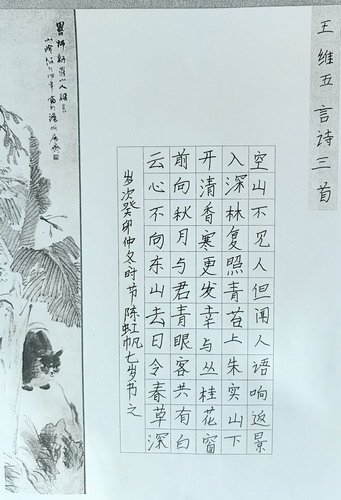 王维五言诗三首
空山不见人但闻人语响返景
入深林复照青苔上朱实山下
开清香寒更发幸与丛桂花窗
前向秋月与君青眼客共有白
云心不向东山去日令春草深
岁次癸卯仲冬时节陈虹帆七岁书之